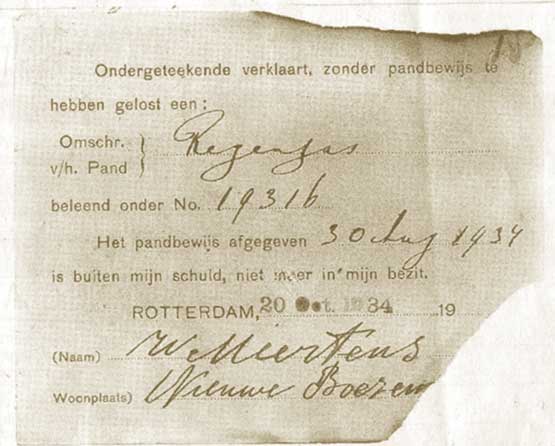 18
Ondergeteekende verklaart, zonder pandbewijs te
hebben gelost een:
Omschr. } Regenjas
v/h. Pand
beleend onder No. 19316
Het pandbewijs afgegeven 30 Aug 1934
is buiten mijn schuld, niet meer in mijn bezit.
ROTTERDAM, 20 Oct. 1934 19
(Naam) W Meertens
Woonplaats) Nieuwe Boezem